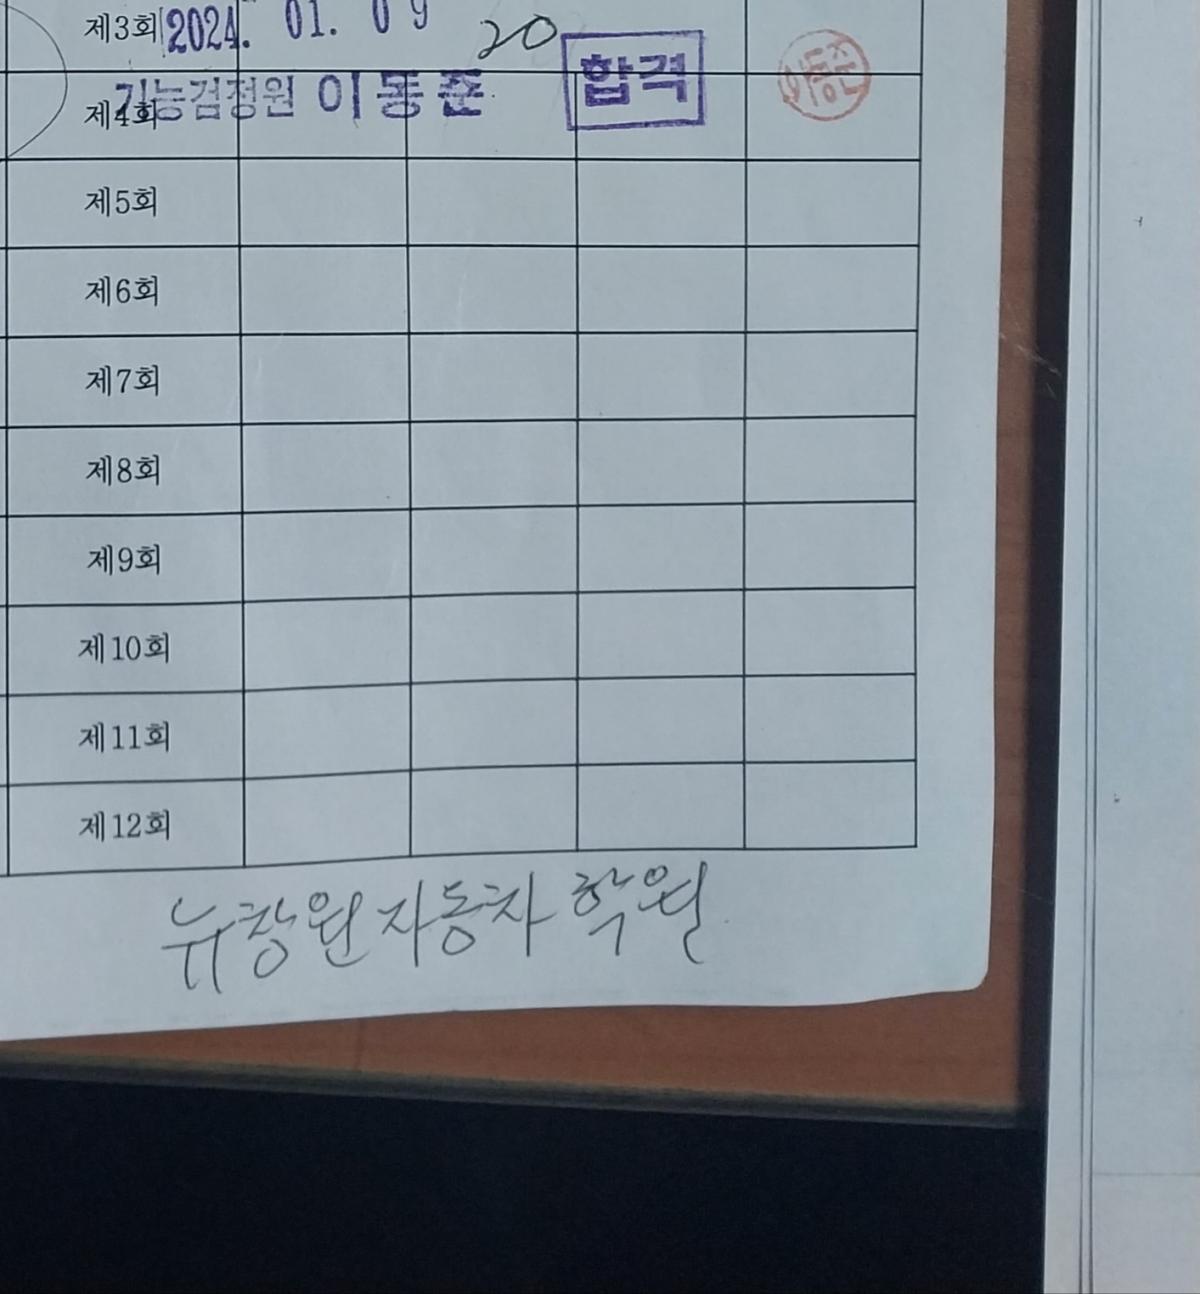 제3회 2024. 01. 09 20
제4회 기능검정원 이동준 합격 이동준
제5회
제6회
제7회
제8회
제9회
제10회
제11회
제12회
뉴창원자동차학원